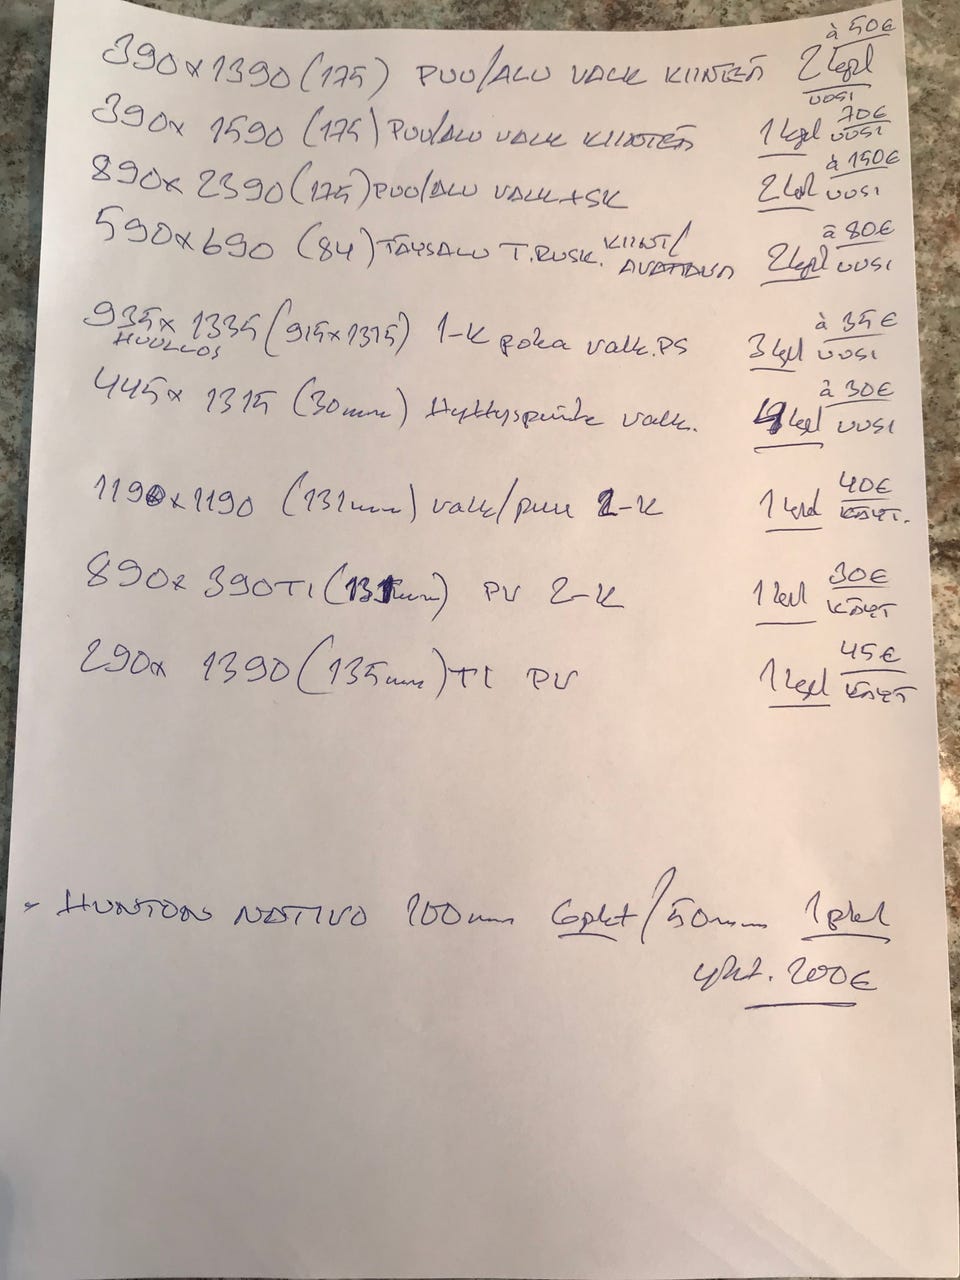 390x1390 (175) PUU/ALU VALK KIINTEÄ 2 kpl à 50€ UUSI
390x 1590 (175) PUU/ALU VALK KIINTEÄ 1 kpl 70€ UUSI
890x 2390 (175) PUU/ALU VALK+SK 2 kpl à 150€ UUSI
590x690 (84) TÄYSALU T.RUSK. KIINT/ AVATTAVA 2 kpl à 80€ UUSI
935x 1335 (915x1315) 1-K poka valk. PS 3 kpl à 35€ UUSI
HUULLOS
445x 1315 (30mm) Hyttyspuite valk. 4 kpl à 30€ UUSI
1190x1190 (131mm) valk/puu 2-K 1 kpl 40€ KÄYT.
890x 390 TI (131mm) PV 2-K 1 kpl 30€ KÄYT
290x 1390 (135mm) TI PV 1 kpl 45€ KÄYT
- HUNTON NATIVO 100mm 6pkt/50mm 1pkt
yht. 200€